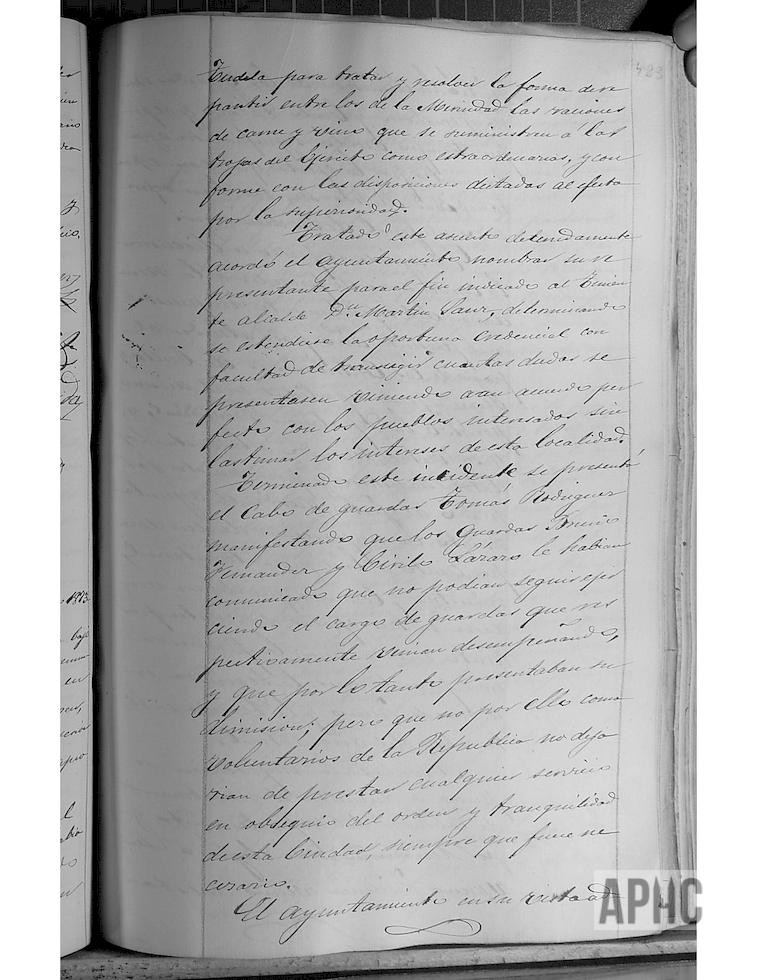 483
Tudela para tratar y resolver la forma de re
partir entre los de la Merindad las raciones
de carne y vino que se suministren á las
tropas del Ejército como estraordinarias, y con
forme con las disposiciones dictadas al efecto
por la superioridad.
Tratado este asunto detenidamente
acordó el Ayuntamiento nombrar su re
presentante para el fin indicado al Tenien
te alcalde Dn. Martin Sanz, determinando
se estendiese la oportuna credencial con
facultad de transigir cuantas dudas se
presentasen viniendo a un acuerdo per
fecto con los pueblos interesados sin
lastimar los intereses de esta localidad.
Terminado este incidente se presentó
el Cabo de guardas Tomás Rodriguez
manifestando que los Guardas
Fernandez y Cirilo Lázaro le habian
comunicado que no podian seguir ejer
ciendo el cargo de guardas que res
pectivamente venian desempeñando,
y que por lo tanto presentaban su
dimision; pero que no por ello como
voluntarios de la Republica no deja
rian de prestar cualquier servicio
en obsequio del orden y tranquilidad
de esta Ciudad, siempre que fuese ne
cesario.
El Ayuntamiento en su vista ad
APHC